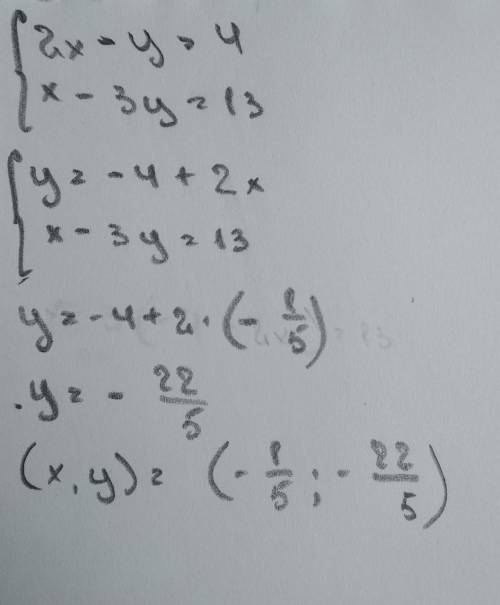 { 2x - y = 4
x - 3y = 13
{ y = -4 + 2x
x - 3y = 13
y = -4 + 2 · (-1/5)
y = - 22/5
(x, y) = (-1/5 ; - 22/5)